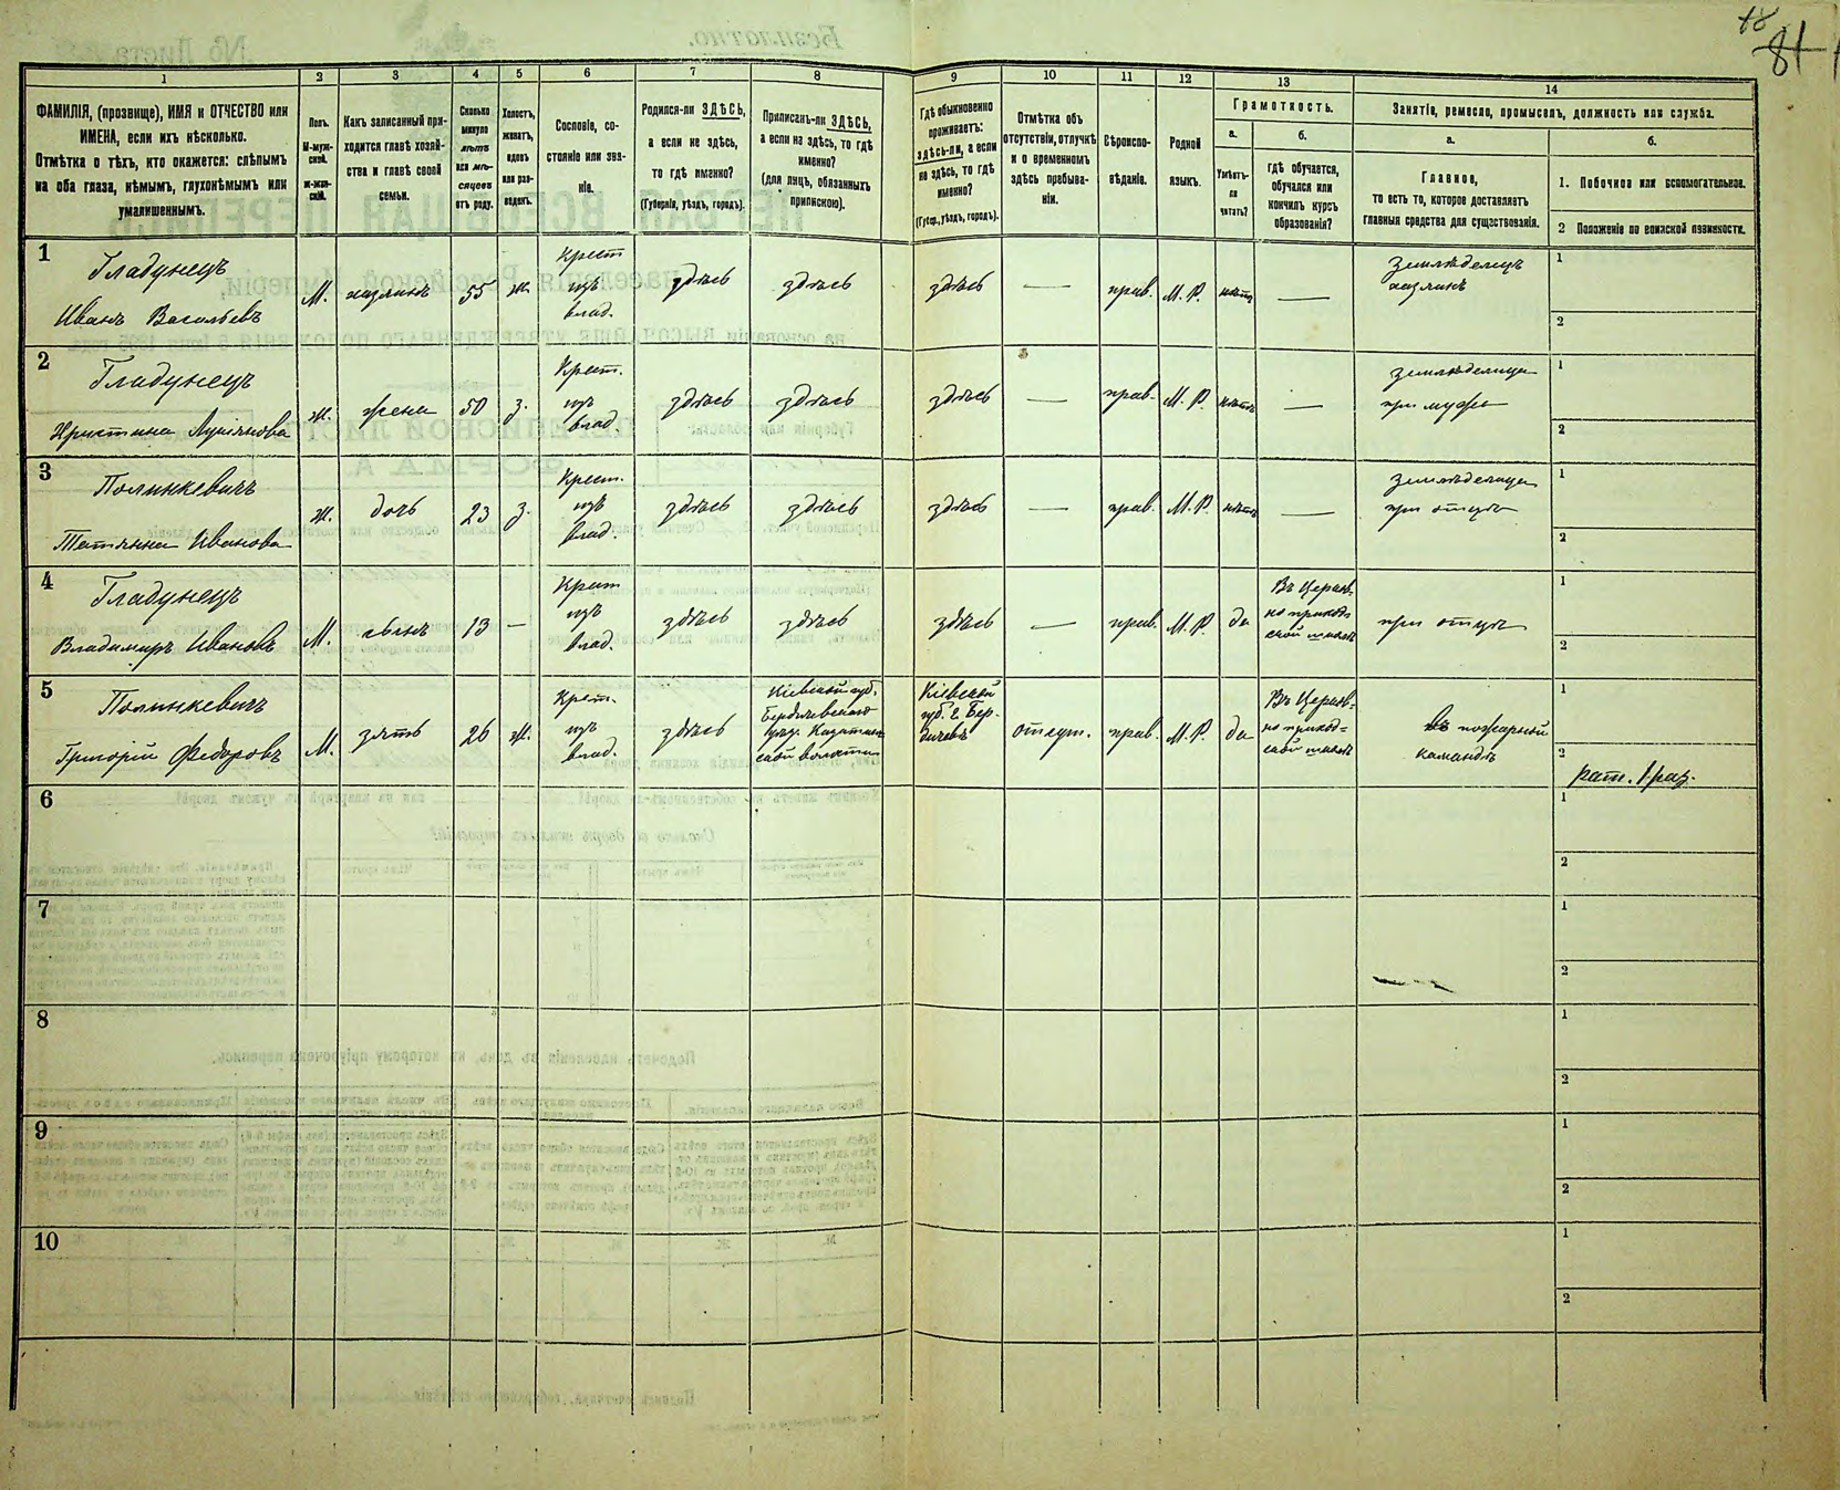 18
81
1
2
3
4
5
6
7
8
9
10
11
12
13
14
ФАМИЛІЯ, (прозвище), ИМЯ и ОТЧЕСТВО или
ИМЕНА, если ихъ нѣсколько.
Отмѣтка о тѣхъ, кто окажется: слѣпымъ
на оба глаза, нѣмымъ, глухонѣмымъ или
умалишеннымъ.
Полъ.
М-муж-
ской.
Ж-жен-
скій.
Какъ записанный при-
ходится главѣ хозяй-
ства и главѣ своей
семьи.
Сколько
минуло
лѣтъ
или мѣ-
сяцевъ
отъ роду.
Холостъ,
женатъ,
вдовъ
или раз-
веденъ.
Сословіе, со-
стояніе или зва-
ніе.
Родился-ли ЗДѢСЬ,
а если не здѣсь,
то гдѣ именно?
(Губернія, уѣздъ, городъ).
Приписанъ-ли ЗДѢСЬ,
а если не здѣсь, то гдѣ
именно?
(для лицъ, обязанныхъ
припискою).
Гдѣ обыкновенно
проживаетъ:
здѣсь-ли, а если
не здѣсь, то гдѣ
именно?
(Губер., уѣздъ, городъ).
Отмѣтка объ
отсутствіи, отлучкѣ
и о временномъ
здѣсь пребыва-
ніи.
Вѣроиспо-
вѣданіе.
Родной
языкъ.
Грамотность.
а.
Умѣетъ-
ли
читать?
б.
гдѣ обучается,
обучался или
кончилъ курсъ
образованія?
Занятіе, ремесло, промыселъ, должность или служба.
а.
Главное,
то есть то, которое доставляетъ
главныя средства для существованія.
б.
1. Побочное или вспомогательное.
2 Положеніе по воинской повинности.
1
Гладунецъ
Иванъ Васильевъ
М. хазяинъ 55 ж.
Крест
изъ
влад.
здѣсь здѣсь здѣсь — прав. М. Р. нѣтъ —
Землѣделецъ
хазяинъ
1
2
2
Гладунецъ
Христина Лукіянова
ж. жена 50 з.
Крест.
изъ
влад.
здѣсь здѣсь здѣсь — прав. М. Р. нѣтъ —
землѣделица
при мужѣ
1
2
3
Полинкевичъ
Татянна Иванова
ж. дочь 23 з.
Крест.
изъ
влад.
здѣсь здѣсь здѣсь — прав. М. Р. нѣтъ —
землѣделица
при отцѣ
1
2
4
Гладунецъ
Владимиръ Ивановъ
М. сынъ 13 —
Крест
изъ
влад.
здѣсь здѣсь здѣсь — прав. М. Р. да
Въ Церков-
но приход-
ской школѣ
при отцѣ
1
2
5
Полинкевичъ
Григорій Федоровъ
М. зять 26 ж.
Крест.
изъ
влад.
здѣсь
Кіевской губ.
Бердичевскаго
уѣзд. Казатин
ской волости
Кіевской
губ. г. Бер-
дичевъ
отлуч. прав. М. Р. да
Въ Церков-
но приход-
ской школѣ
въ пожарной
командѣ
1
2
рат. 1 раз.
6
1
2
7
1
2
8
1
2
9
1
2
10
1
2